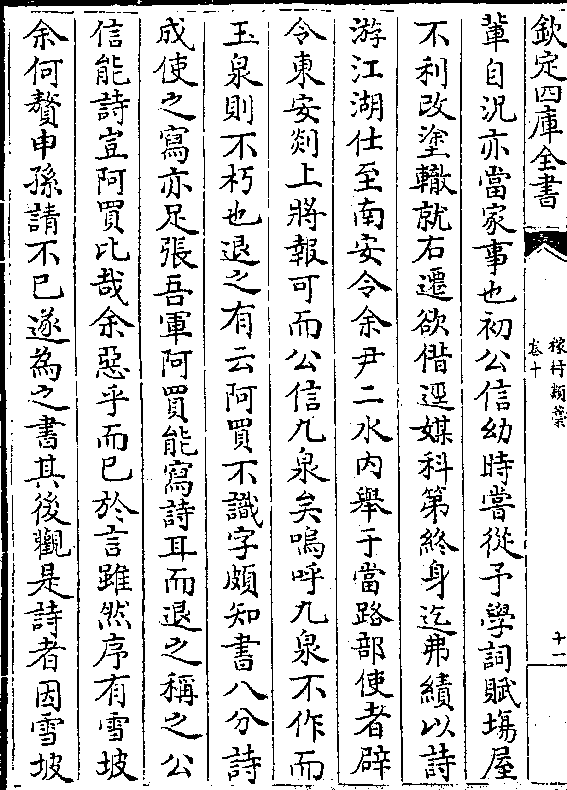 欽定四庫全書
稼村類藁
卷十
十一
軰自况亦當家事也初公信幼時嘗從予學詞賦塲屋
不利改塗轍就右遷欲偕逕媒科第終身迄弗績以詩
游江湖仕至南安令余尹二水内舉于當路部使者辟
令東安剡上將報可而公信九泉矣嗚呼九泉不作而
玉泉則不朽也退之有云阿買不識字頗知書八分詩
成使之寫亦足張吾軍阿買能寫詩耳而退之稱之公
信能詩豈阿買比哉余惡乎而已於言雖然序有雪坡
余何贅申孫請不已遂為之書其後觀是詩者因雪坡